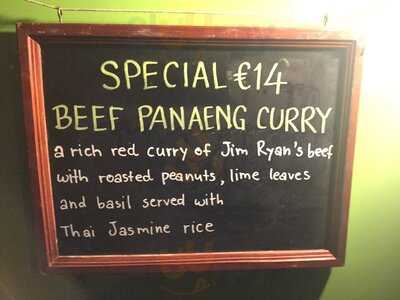 SPECIAL €14
BEEF PANAENG CURRY
a rich red curry of Jim Ryan's beef
with roasted peanuts, lime leaves
and basil served with
Thai Jasmine rice